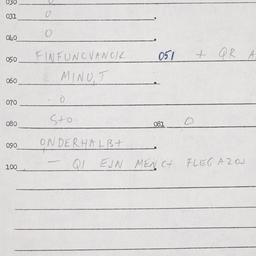 030
031 0
040 0
050 FINFUNCVANCIK 051 + QR A
060 MINU,T
070 0
080 S+O 081 O
090 ONDERHALB+
100 — QI EJN MENC+ FLEG AZOJ